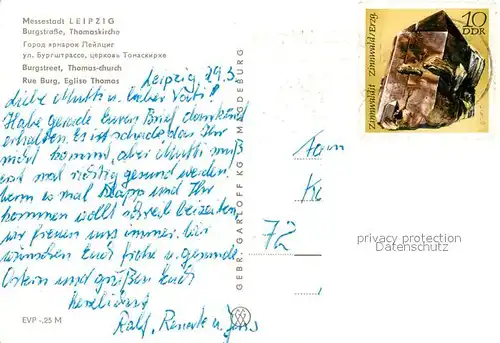 Messestadt LEIPZIG
Burgstraße, Thomaskirche
Город ярмарок Лейпциг
ул. Бургштрассе, церковь Томаскирхе
Burgstreet, Thomas-church
Rue Burg, Eglise Thomas
Leipzig, 29.3.
Liebe Mutti u. lieber Vati!
Habe gerade Euren Brief dankend
erhalten. Es ist schade, das Ihr
nicht kommt, aber Mutti muß
erst mal richtig gesund werden.
Wenn es mal klappt und Ihr
kommen wollt schreibt beizeiten,
wir freuen uns immer. Wir
wünschen Euch frohe u. gesunde
Ostern und grüßen Euch
herzlichst
Ralf, Renate u. Jens
EVP -,25 M
GEBR. GARLOFF KG MAGDEBURG
Fam
72
10
DDR
Zinnwaldit Zinnwald/Erzg.
privacy protection
Datenschutz